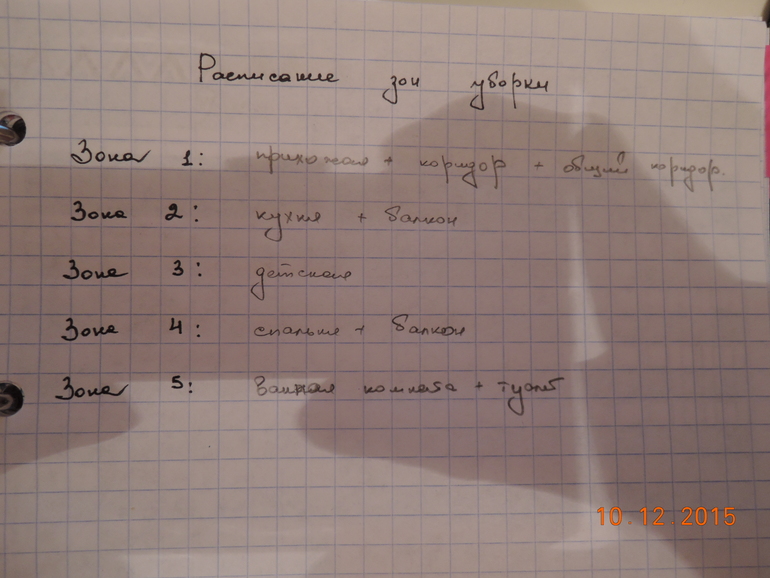 Расписание зон уборки
Зона 1: прихожая + коридор + общий коридор.
Зона 2: кухня + балкон
Зона 3: детская
Зона 4: спальня + балкон
Зона 5: Ванная комната + туалет
10.12.2015